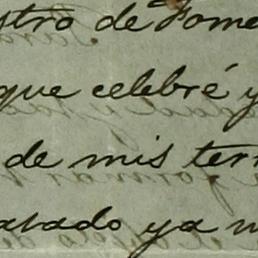 stro de Fome
que celebré y
de mis terr
avado ya